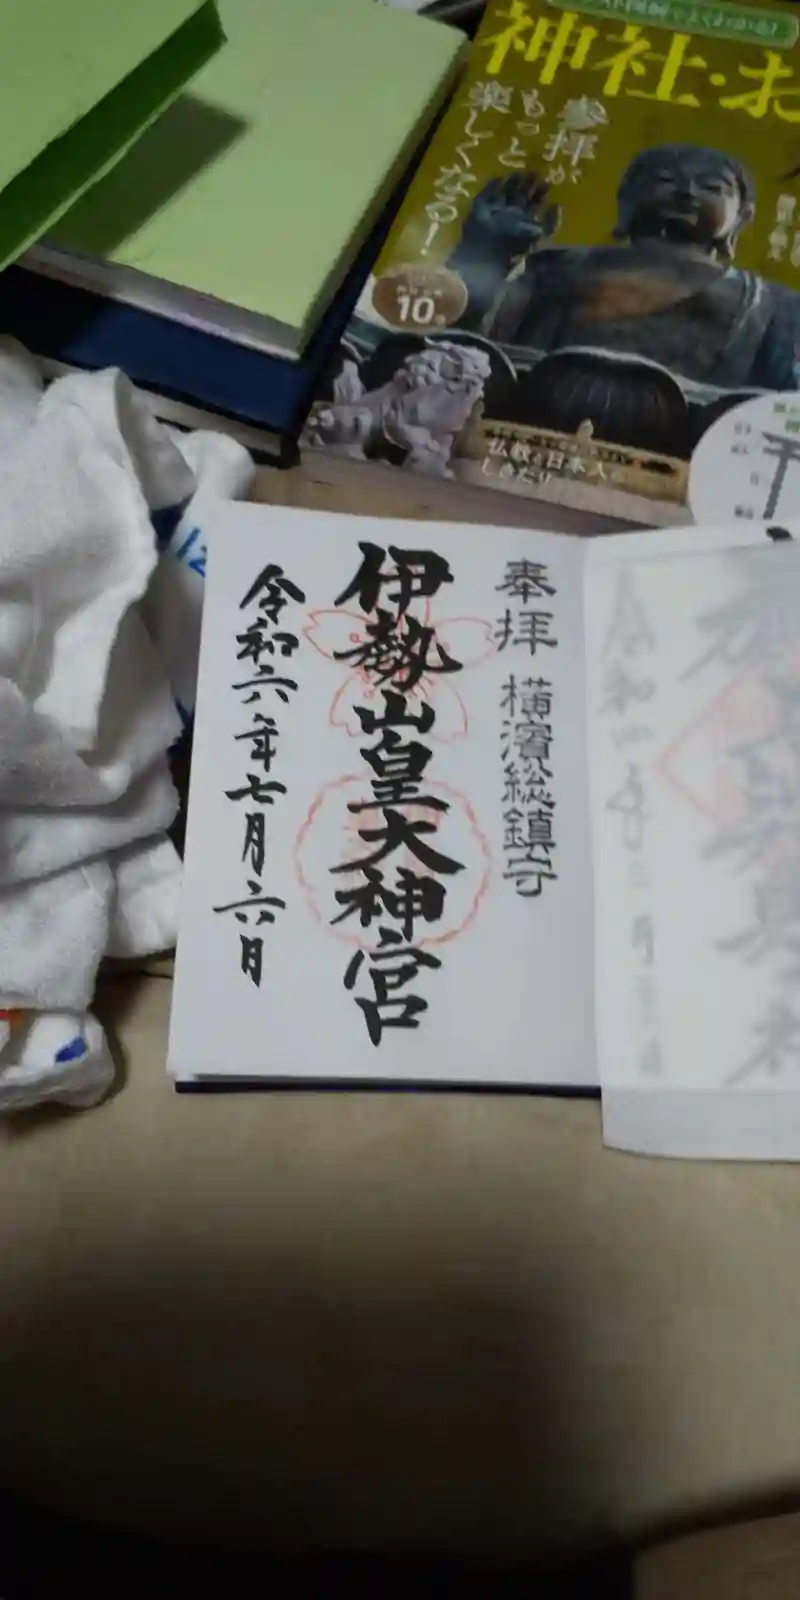 神社・お
参拝が
もっと
楽しくなる!
10
仏教と日本人の
しきたり
奉拝 横濱総鎮守
伊勢山皇大神宮
令和六年七月六日